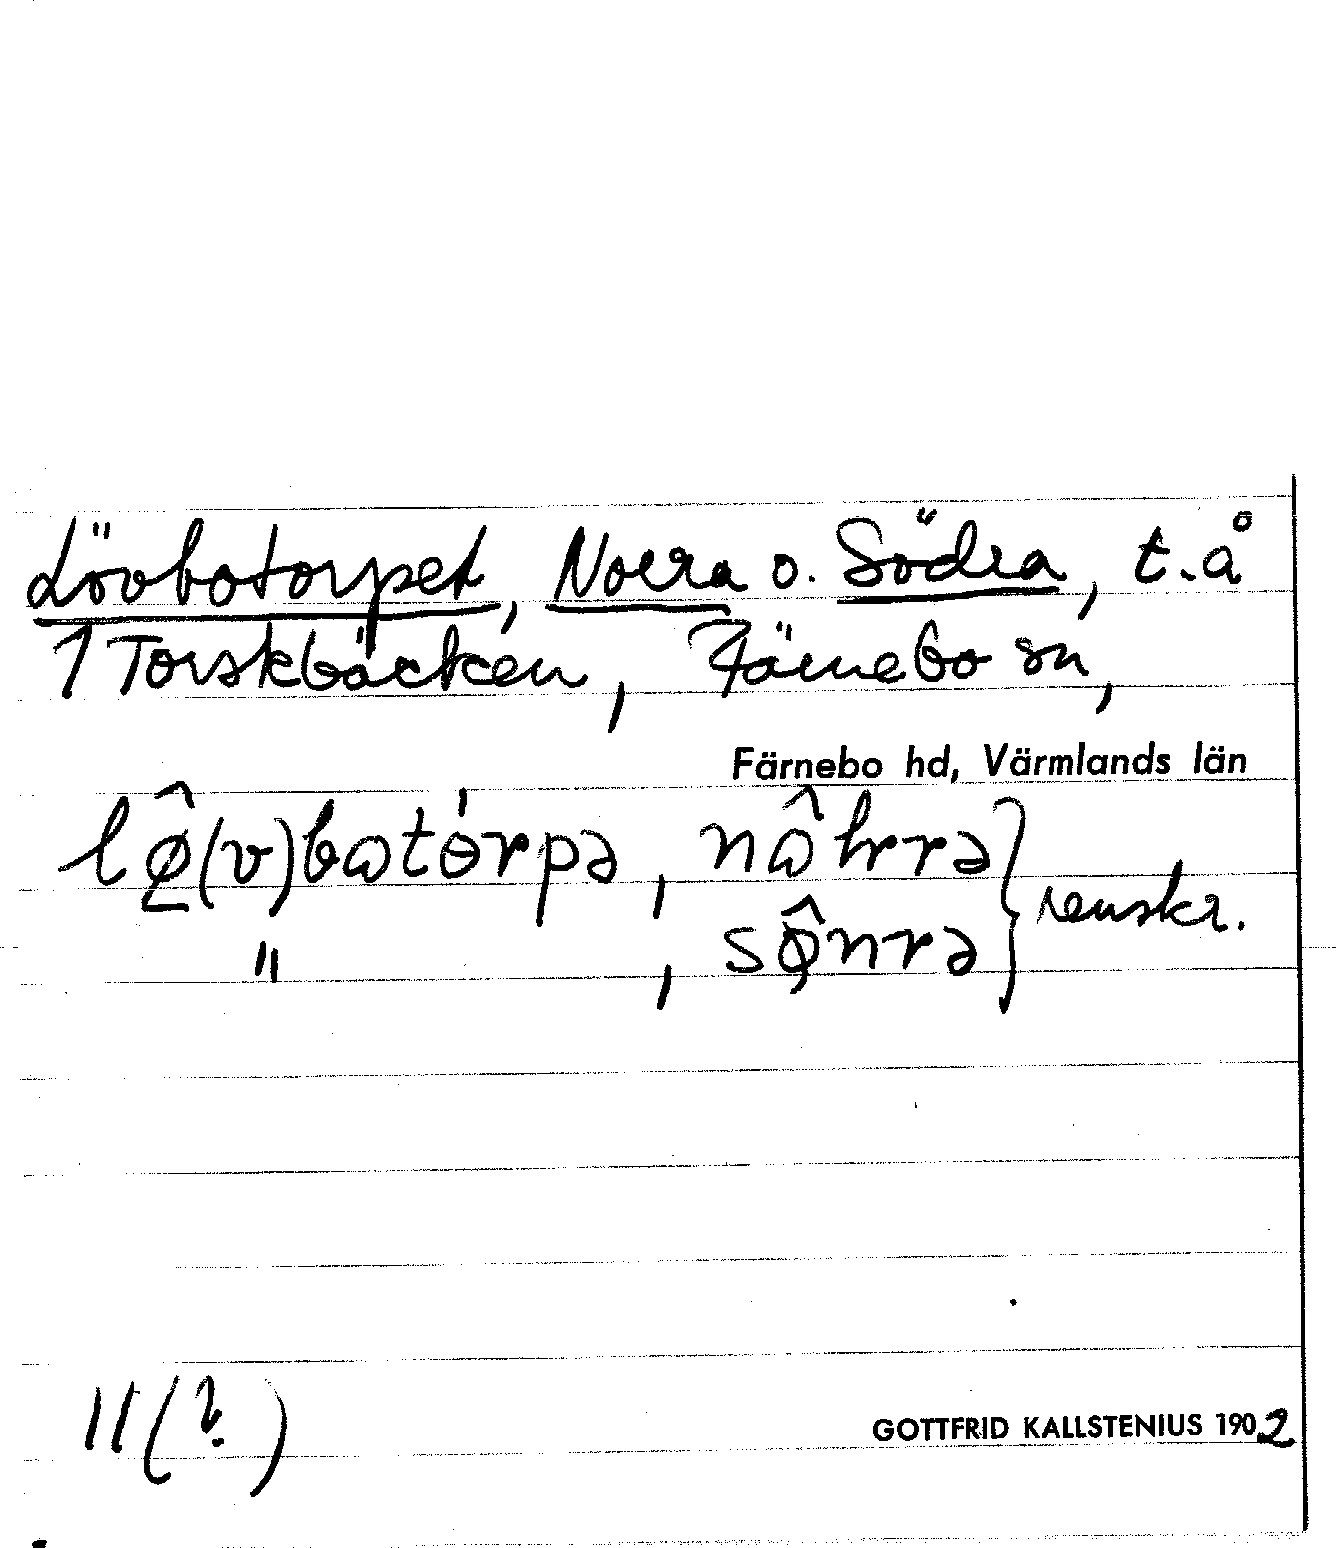 Lövbotorpet, Norra o. Södra, t. å
1 Torskbäcken, Färnebo sn,
Färnebo hd, Värmlands län
lø̂(v)bωtɵ́rpə, nω̂hrrə } renskr.
" , sø̂nrə
11 (?)
GOTTFRID KALLSTENIUS 1902